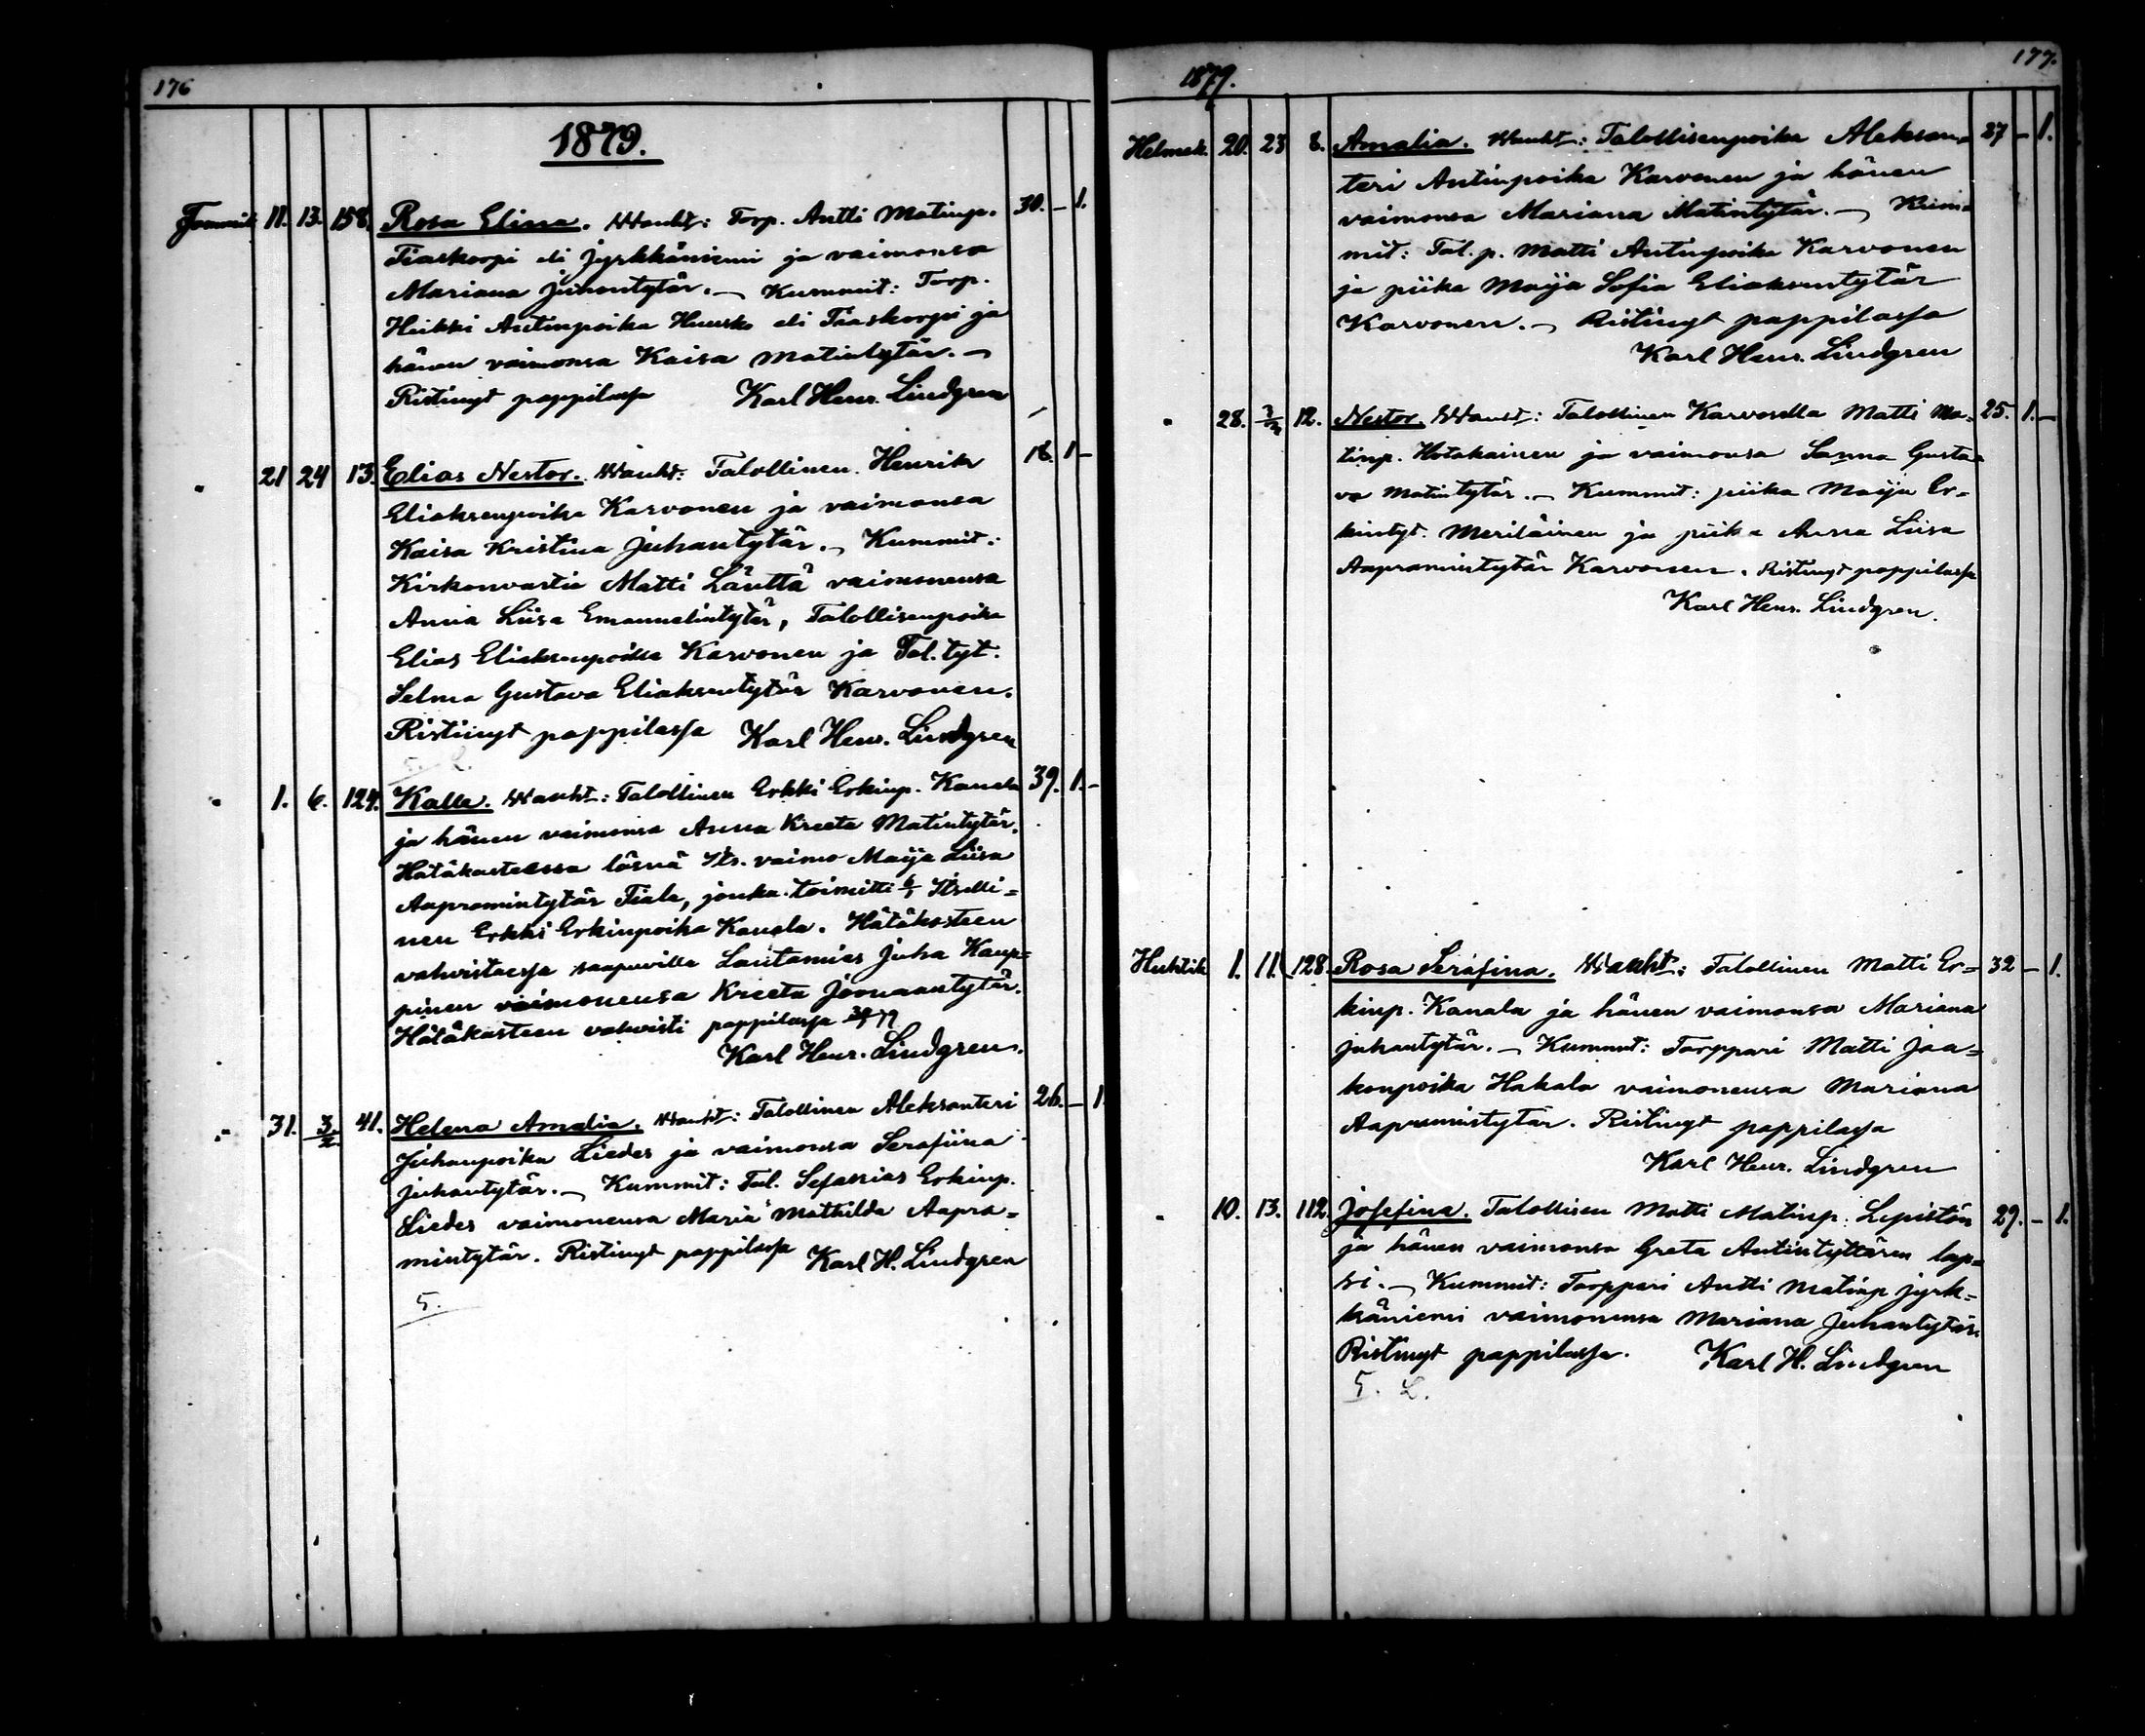 176
1879.
11. 13. 158. Rosa Elina. Wanh: Torp. Antti Matinp. 30. – 1.
Tiaskorpi eli Jyrkkäniemi ja vaimonsa
Mariana Juhontytär. – Kummit: Torp.
Heikki Antinpoika Huusko eli Tiaskorpi ja
hänen vaimonsa Kaisa Matintytär. –
Ristinyt pappilassa Karl Henr. Lindgren
" 21 24 13. Elias Nestor. Wanh: Talollinen Henrik 18. 1 –
Eliaksenpoika Karvonen ja vaimonsa
Kaisa Kristina Juhantytär. – Kummit:
Kirkonvartia Matti Läuttä vaimonensa
Anna Liisa Emanuelintytär, Talollisenpoika
Elias Eliaksenpoika Karvonen ja Tal. tyt.
Selma Gustava Eliaksentytär Karvonen.
Ristinyt pappilassa Karl Henr. Lindgren
" 1. 6. 124. Kalle. Wanht: Talollinen Erkki Erkinp. Kanala 39. 1. –
ja hänen vaimonsa Anna Kreeta Matintytär.
Hätäkasteessa läsnä Its. vaimo Maija Liisa
Aapramintytär Tiala, jonka toimitti 6/1 Itselli=
nen Erkki Erkinpoika Kanala. Hätäkasteen
vahvistaessa saapuvilla Lautamies Juha Kaup=
pinen vaimonensa Kreeta Joonaantytär.
Hätäkasteen vahvisti pappilassa
Karl Henr. Lindgren.
" 31. 3/2 41. Helena Amalia. Wanht: Talollinen Aleksanteri 26. – 1
Juhanpoika Liedes ja vaimonsa Serafiina
Juhantytär. – Kummit: Tal. Sefanias Erkinp.
Liedes vaimonensa Maria Mathilda Aapra=
mintytär. Ristinyt pappilassa Karl H. Lindgren
5.
1879.
177.
Helmik. 20. 23 8. Amalia. Wanht: Talollisenpoika Aleksan= 27 – 1.
teri Antinpoika Karvonen ja hänen
vaimonsa Mariana Matintytär. – Kum=
mit: Tal. p. Matti Antinpoika Karvonen
ja piika Maija Sofia Eliaksentytär
Karvonen. – Ristinyt pappilassa
Karl Henr. Lindgren
" 28. 12. Nestor. Wanht: Talollinen Karvosella Matti Ma= 25. 1. –
tinp. Hotakainen ja vaimonsa Sanna Gusta=
va Matintytär. – Kummit: piika Maija Er=
kintyt. Meriläinen ja piika Anna Liisa
Aapramintytär Karvonen. Ristinyt pappilassa
Karl Henr. Lindgren.
Huhtik 1. 11. 128. Rosa Serafina. Wanht: Talollinen Matti Er= 32 – 1.
kinp. Kanala ja hänen vaimonsa Mariana
Juhantytär. – Kummit: Torppari Matti Jaa=
konpoika Hakala vaimonensa Mariana
Aapramintytär. Ristinyt pappilassa
Karl Henr. Lindgren
" 10. 13. 112. Josefina. Talollisen Matti Matinp. Lepistön 29. – 1.
ja hänen vaimonsa Greta Antintyttären lap=
si. – Kummit: Torppari Antti Matinp Jyrk=
käniemi vaimonensa Mariana Juhantytär.
Ristinyt pappilassa. Karl H. Lindgren
5. L.